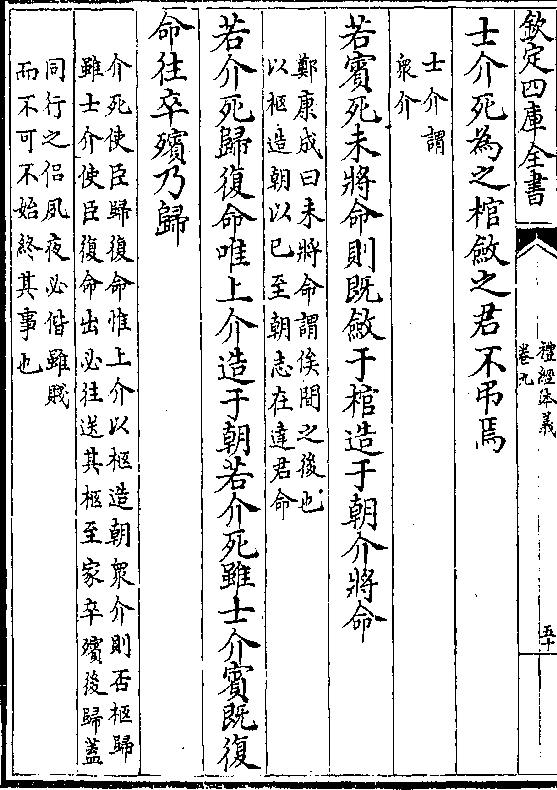 欽定四庫全書
禮經本義
卷九
五十
士介死為之棺斂之君不弔焉
士介謂
衆介
若賓死未將命則既斂于棺造于朝介將命
鄭康成曰未將命謂俟閒之後也
以柩造朝以已至朝志在達君命
若介死歸復命唯上介造于朝若介死雖士介賓既復
命往卒殯乃歸
介死使臣歸復命惟上介以柩造朝衆介則否柩歸
雖士介使臣復命出必往送其柩至家卒殯後歸蓋
同行之侣夙夜必偕雖賤
而不可不始終其事也